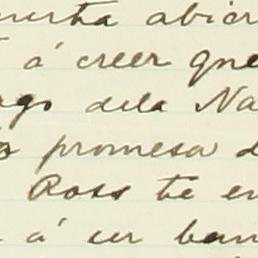 abier
á creer que
dela Na
promesa d
Ross te en
á ser ban